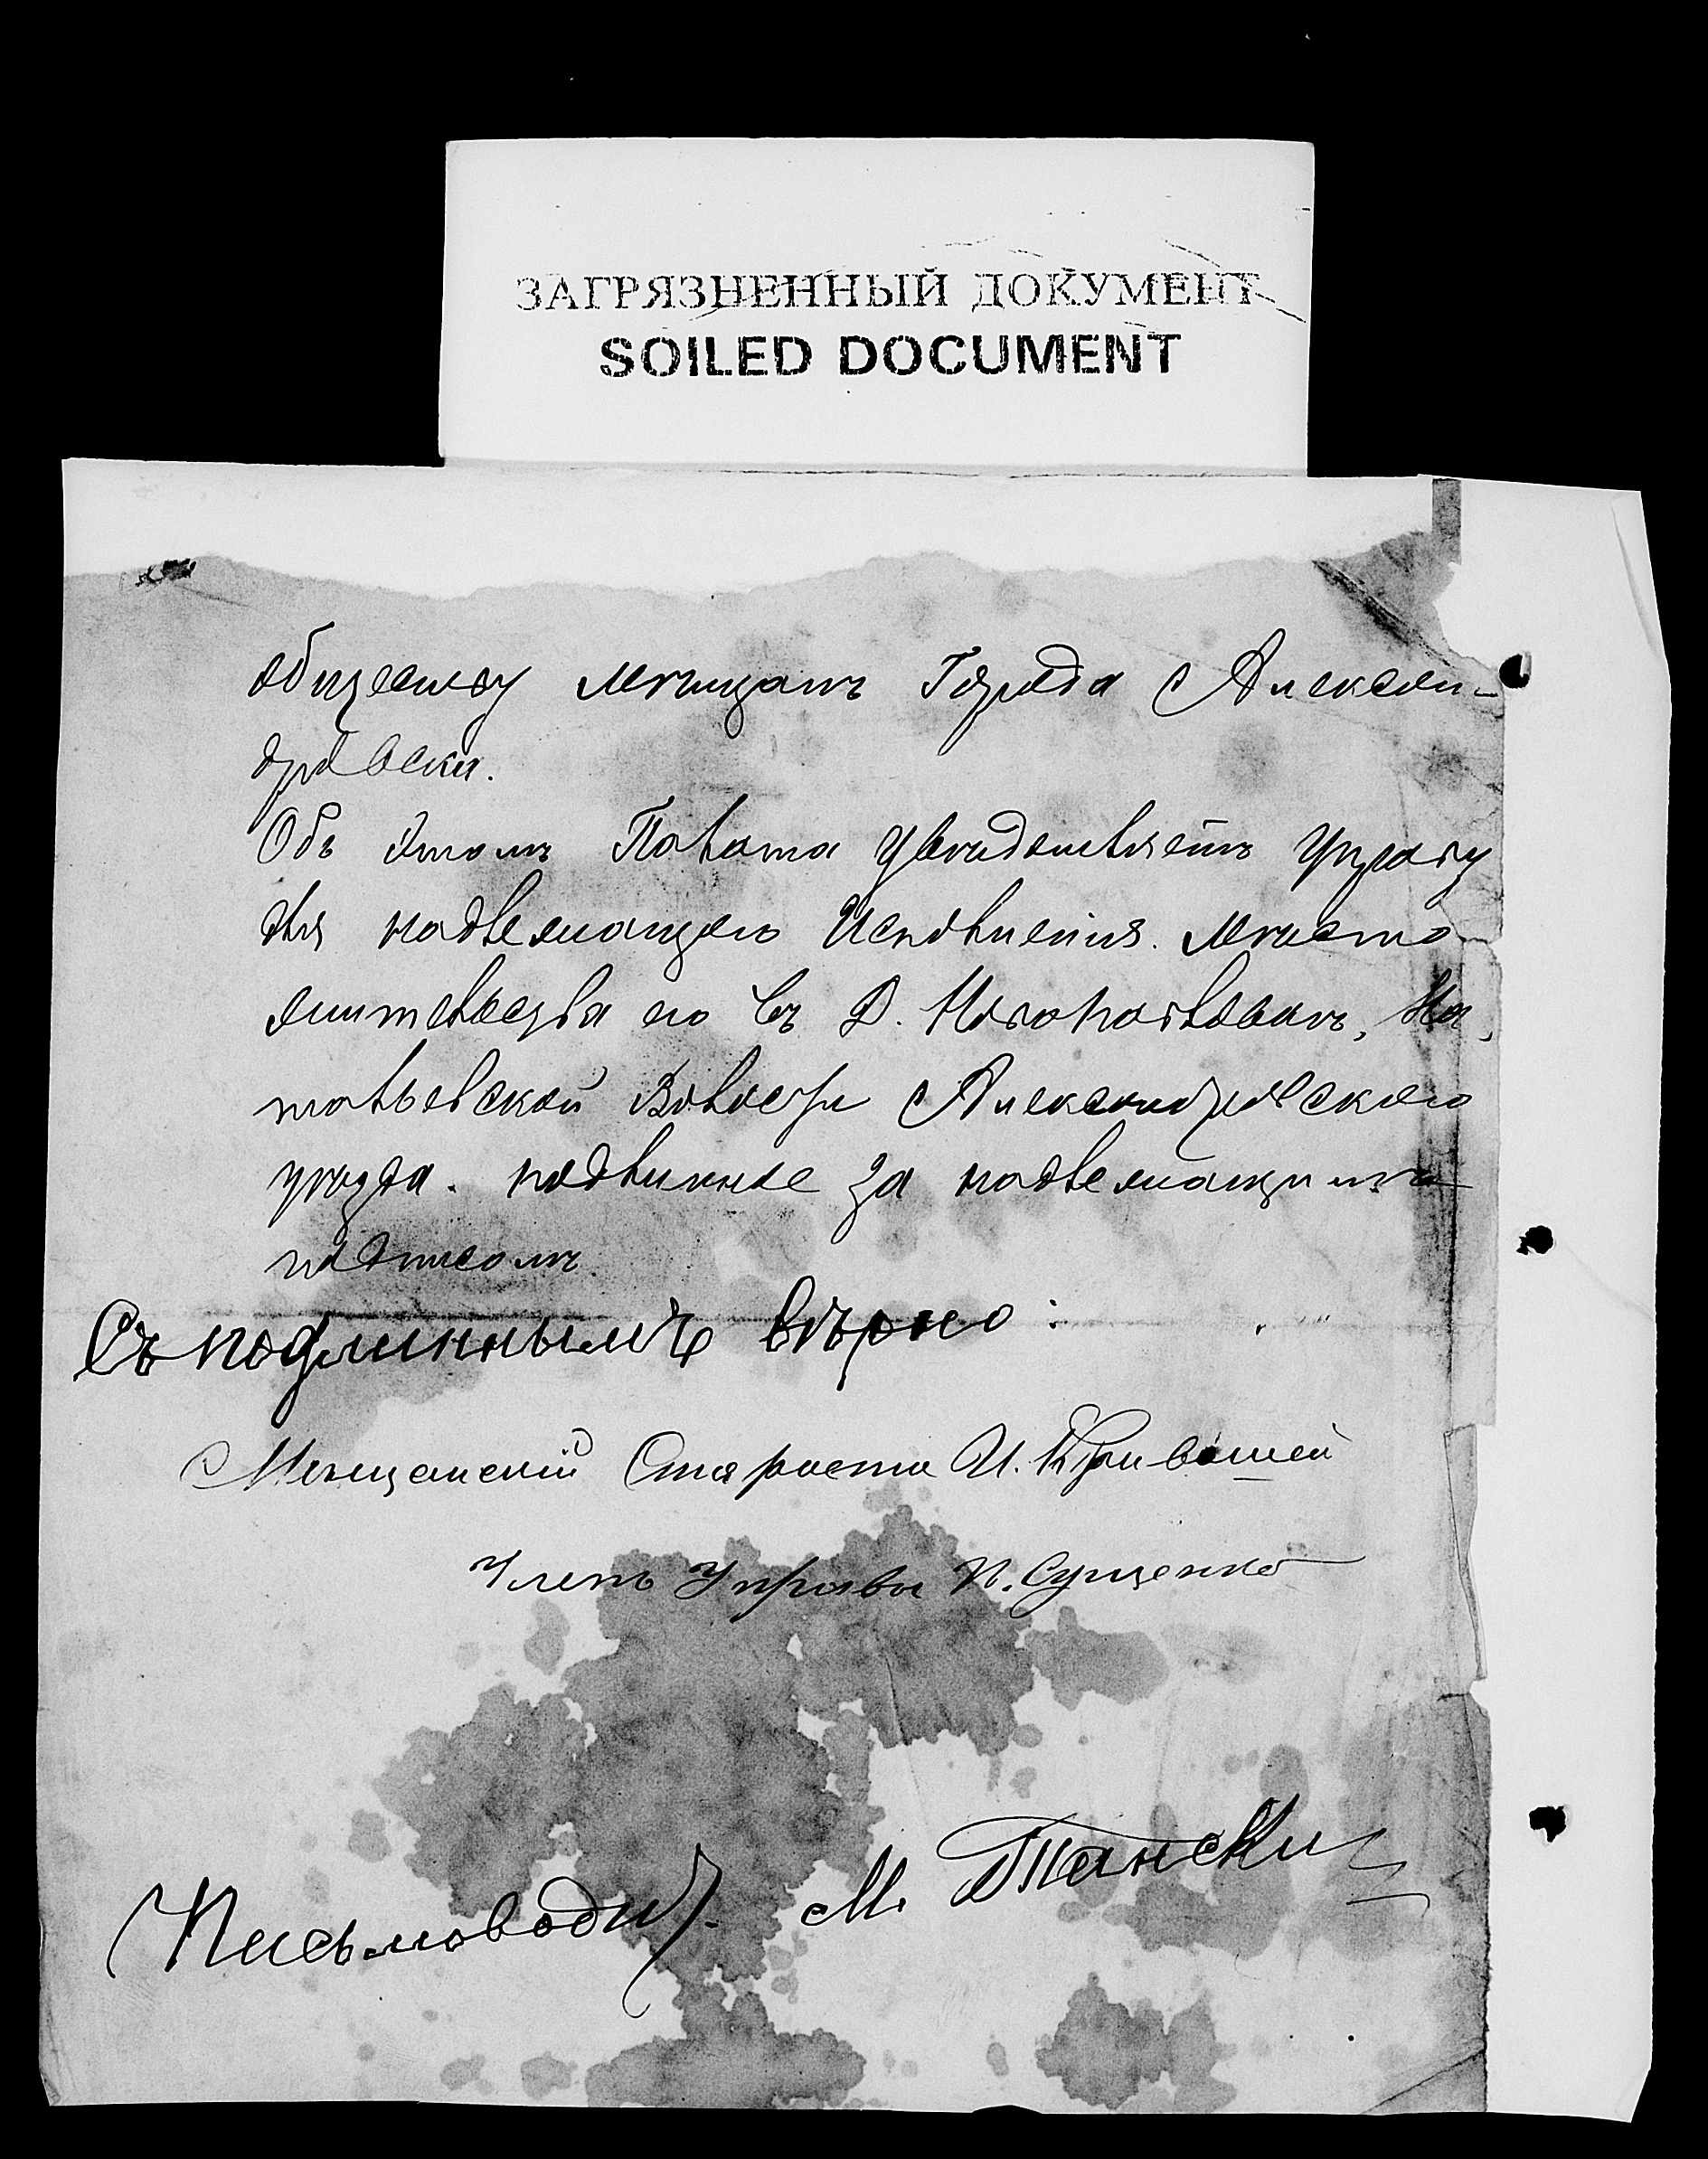 ЗАГРЯЗНЕННЫЙ ДОКУМЕНТ
SOILED DOCUMENT
обществу мѣщанъ Города Алексан-
дровска.
Объ этомъ Палата увѣдомляетъ Управу
для надлежащего Исполнения. Мѣсто
жительства его въ Д.
Волости Александровского
уѣзда. подлинное за надлежащимъ
подписомъ
Съ подлиннымъ вѣрно:
Мѣщанскій Староста И. Кривошей
Членъ Управы П. Сущенко
Письмовод. М. Тански